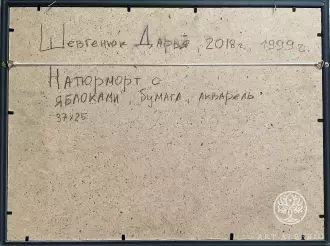 Шевгенюк Дарья, 2018г, 1999г.
Натюрморт с
яблоками, бумага, акварель
37х25